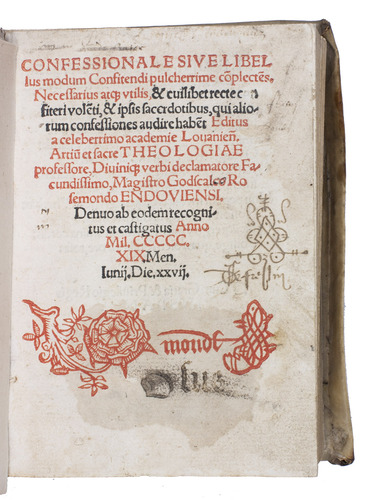 CONFESSIONALE SIVE LIBEL-
lus modum Confitendi pulcherrime cōplectēs,
Necessarius atq; vtilis, & cuilibet recte con
fiteri volēti, & ipsis sacerdotibus, qui alio-
rum confessiones audire habēt Editus
a celeberrimo academie Louanień.
Artiū et sacre THEOLOGIAE
professore, Diuiniq; verbi declamatore Fa
cundissimo, Magistro Godscalco Ro
semondo ENDOVIENSI.
Denuo ab eodem recogni
tus et castigatus Anno
Mil. CCCCC.
XIX. Men.
Iunij. Die. xxvij.
monde